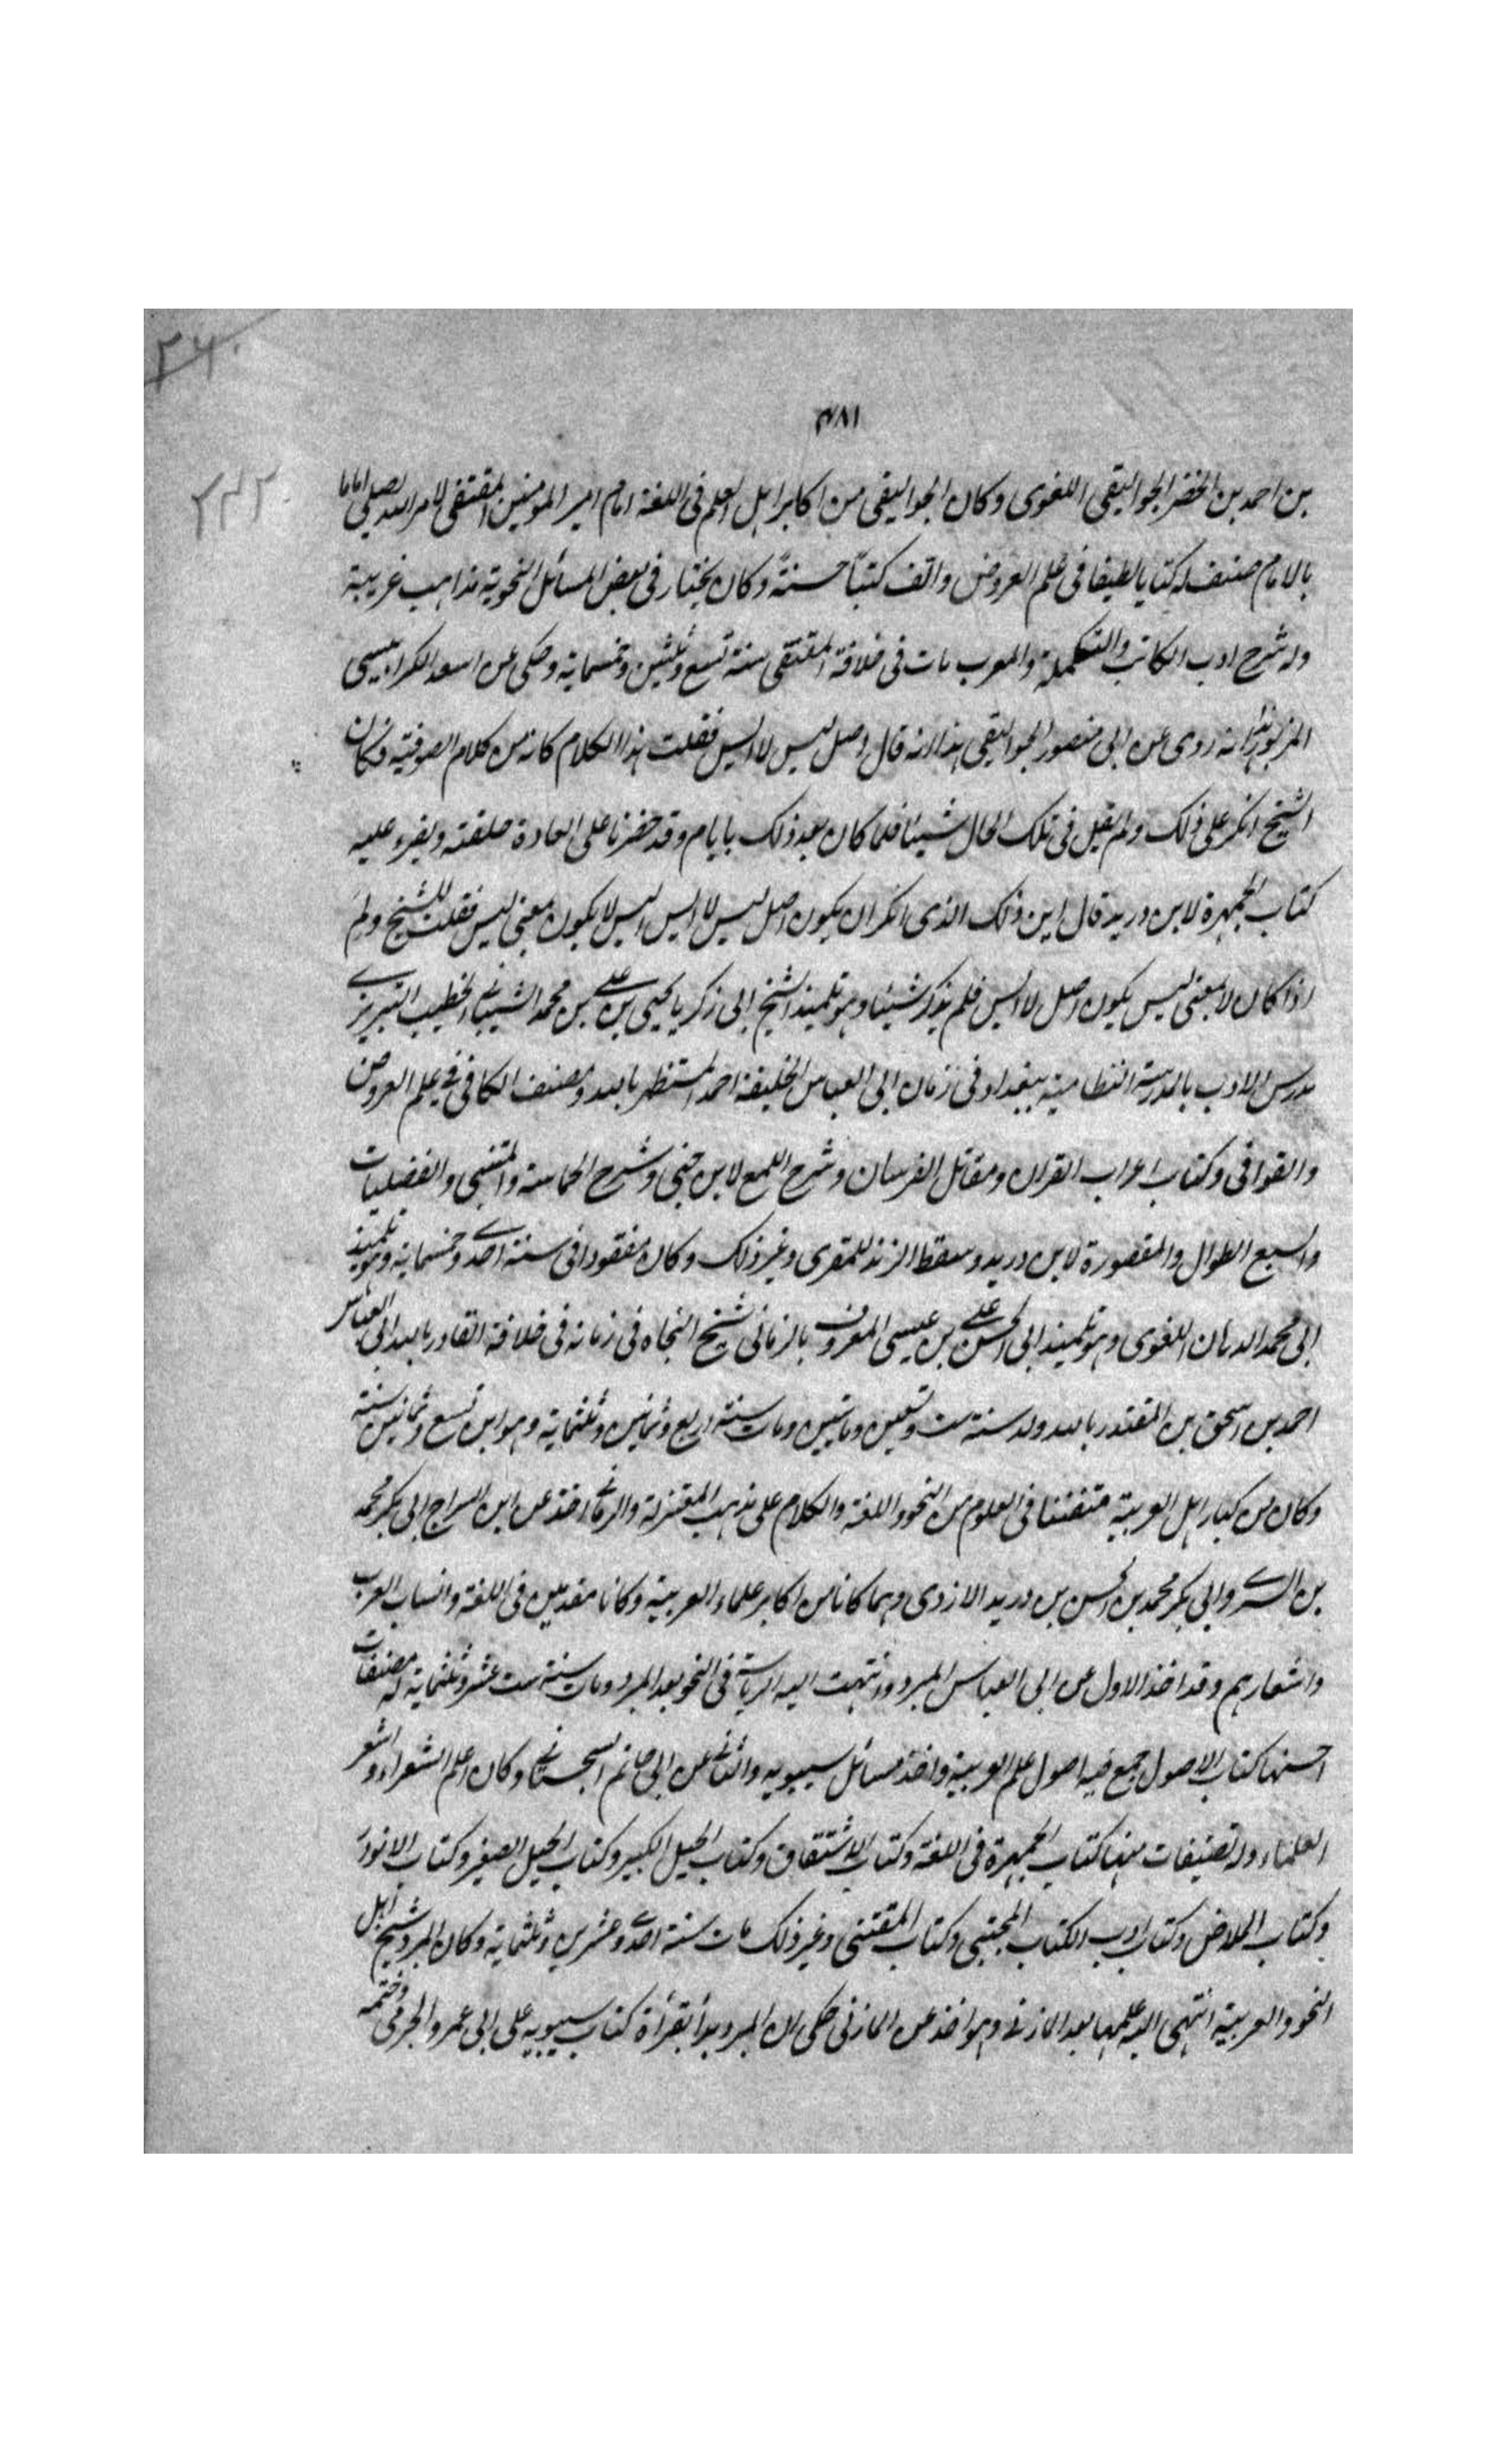 ٢٦٠
٤٨١
٢٤٢
بن احمد بن الخضر الجواليقى اللغوى وكان الجواليقى من اكابر اهل العلم فى اللغة امام امير المومنين المقتفى لامر الله يصلى اماما
بالامام صنف له كتابا لطيفا فى علم العروض والف كتبا حسنة وكان يختار فى بعض المسائل النحوية مذاهب غريبة
وله شرح ادب الكاتب والتكملة والمعرب مات فى خلافة المقتفى سنة تسع وثلثين وخمسماية وحكى عن اسعد الكرابيسى
المزبور انه روى عن ابى منصور الجواليقى هذا انه قال اصل ليس لا ايس فقلت هذا الكلام كانه من كلام الصوفية فكان
الشيخ انكر على ذلك ولم يقل فى تلك الحال شيئا فلما كان بعد ذلك بايام وقد حضرنا على العادة حلقته ويقرء عليه
كتاب الجمهرة لابن دريد قال اين ذلك الذى انكر ان يكون اصل ليس لا ايس اليس لا يكون بمعنى ليس فقلت للشيخ ولم
اذا كان لا بمعنى ليس يكون اصل لا ايس فلم يذكر شيئا وهو تلميذ الشيخ ابى زكريا يحيى بن على بن محمد الشيبانى الخطيب التبريزى
مدرس الادب بالمدرسة النظامية ببغداد فى زمان ابى العباس الخليفة احمد المستظهر بالله ومصنف الكافى فى علم العروض
والقوافى وكتاب اعراب القران ومقاتل الفرسان وشرح اللمع لابن جنى وشرح الحماسة والمتنبى والفضليات
والسبع الطوال والمقصورة لابن دريد وسقط الزند للمقرى وغير ذلك وكان مفقودا فى سنة احدى وخمسماية وهو تلميذ
ابى محمد الدهان اللغوى وهو تلميذ ابى الحسن على بن عيسى المعروف بالرمانى شيخ النحاه فى زمانه فى خلافة القادر بالله ابى العباس
احمد بن اسحق بن المقتدر بالله ولد سنة ست وتسعين وماتيين ومات سنة اربع وثمانين وثلثماية وهو ابن تسع وثمانين سنة
وكان من كبار اهل العربية متفننا فى العلوم من النحو واللغة والكلام على مذهب المعتزلة والرمانى اخذ عن ابن السراج ابى بكر محمد
بن السرى وابى بكر محمد بن الحسن بن دريد الازدى وهما كانا من اكابر علماء العربية وكانا مقدمين فى اللغة وانساب العرب
واشعارهم وقد اخذ الاول عن ابى العباس المبرد وانتهت اليه الرياسة فى النحو بعد المبرد ومات سنة ست عشر وثلثماية له مصنفات
احسنها كتاب الاصول جمع فيه اصول علم العربية واخذ مسائل سيبويه والثانى عن ابى حاتم السجستانى وكان اعلم الشعراء واشعر
العلماء وله تصنيفات منها كتاب الجمهرة فى اللغة وكتاب الاشتقاق وكتاب الخيل الكبير وكتاب الخيل الصغير وكتاب الانوار
وكتاب الملاض وكتاب ادب الكتاب المجتبى وكتاب المقتنى وغير ذلك مات سنة احدى وعشرين وثلثماية وكان المبرد شيخ اهل
النحو والعربية انتهى اليه علمها بعد المازنى وهو اخذ عن المازنى حكى ان المبرد بدأ بقرأة كتاب سيبويه على ابى عمرو الجرمى وختمه